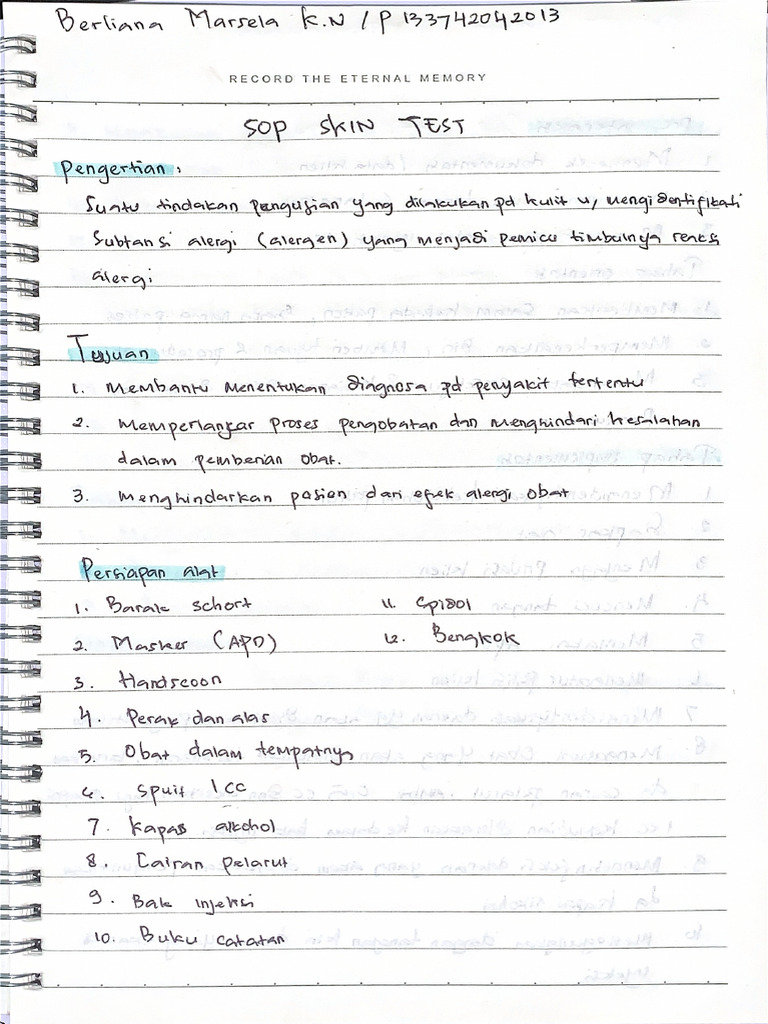 Berliana Marsela K.N / P 133742042013
RECORD THE ETERNAL MEMORY
SOP SKIN TEST
Pengertian :
Suatu tindakan pengujian yang dilakukan pd kulit u/ mengidentifikati
Subtansi alergi (alergen) yang menjadi pemicu timbulnya reaksi
alergi
Tujuan
1. Membantu Menentukan diagnosa pd penyakit tertentu
2. Memperlancar proses pengobatan dan menghindari kesalahan
dalam pemberian obat.
3. Menghindarkan pasien dari efek alergi obat
Persiapan alat
1. Barak schort
2. Masker (APD)
3. Handscoon
4. Perak dan alas
5. Obat dalam tempatnya
6. Spuit 1 cc
7. Kapas alkohol
8. Cairan pelarut
9. Bak Injeksi
10. Buku catatan
11. Spidol
12. Bengkok